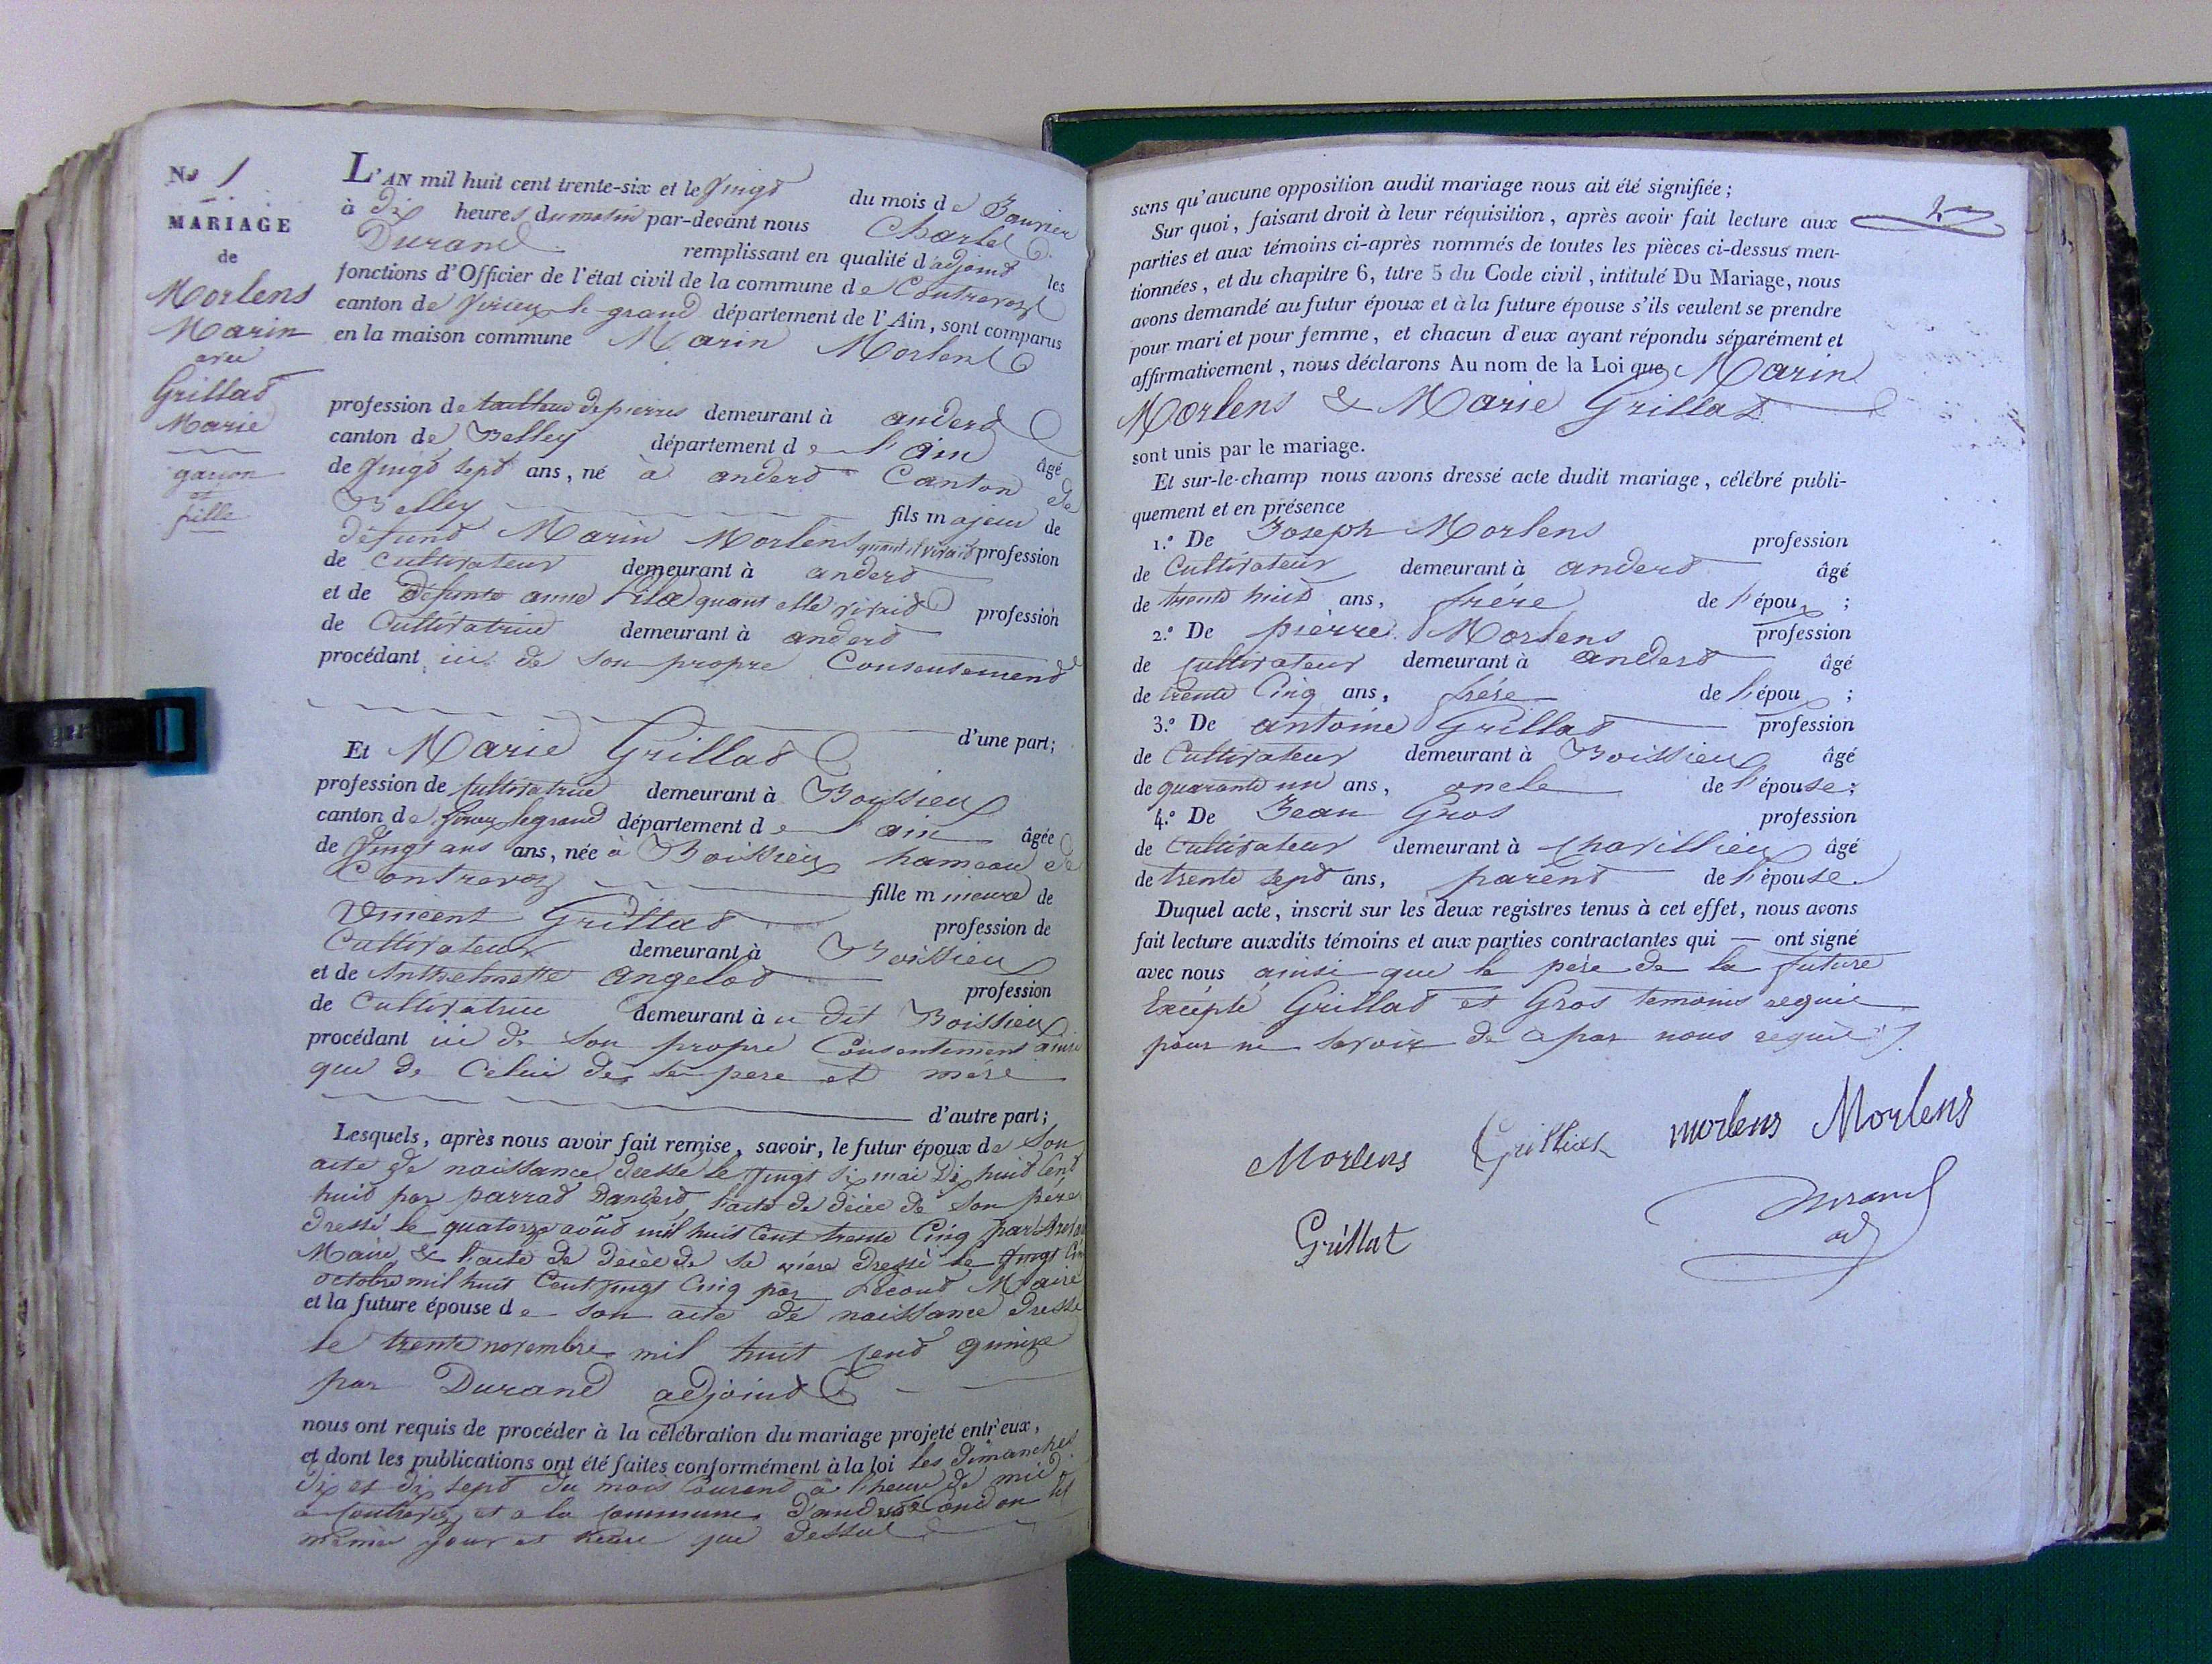 N.º 1
MARIAGE
de
Morlens
Marin
avec
Grillat
Marie
garçon
et
fille
L'AN mil huit cent trente-six et le vingt du mois de Janvier
à dix heures du matin par-devant nous Charles
Durand remplissant en qualité d'adjoint les
fonctions d'Officier de l'état civil de la commune de Contrevoz
canton de Virieu le grand département de l'Ain, sont comparus
en la maison commune Marin Morlens
profession de tailleur de pierres demeurant à andert
canton de Belley département de l'ain âgé
de vingt sept ans, né à andert Canton de
Belley fils majeur de
défunt Marin Morlens quant il vivait profession
de Cultivateur demeurant à andert
et de défunte anne quant elle vivait profession
de Cultivatrice demeurant à andert
procédant ici de son propre Consentement
d'une part;
Et Marie Grillat
profession de Cultivatrice demeurant à Boissieu
canton de Virieu le grand département de l'ain âgée
de Vingt ans ans, née à Boissieu hameau de
Contrevoz fille mineure de
Vincent Grillat profession de
Cultivateur demeurant à Boissieu
et de Anthelmette Angelot profession
de Cultivatrice demeurant à u dit Boissieu
procédant ici de son propre Consentement ainsi
que de Celui de se pere et mére
d'autre part;
Lesquels, après nous avoir fait remise, savoir, le futur époux de Son
acte de naissance dressé le vingt six mai dix huit Cent
huit par parrat Dandert, l'acte de décée de son pére
dressé le quatorze août mil huit Cent trente Cinq par
Maire & l'acte de décée de sa mére dressé le vingt Cinq
octobre mil huit Cent vingt Cinq par Maire
et la future épouse de son acte de naissance dressé
le trente novembre mil huit Cend quinze
par Durand adjoint
nous ont requis de procéder à la célébration du mariage projeté entr'eux,
et dont les publications ont été faites conformément à la loi les dimanches
dix et dix sept du mois Courend a l'heure de midi
a Contrevoz et a la Commune Dandert Condon les
même jour et heure que dessus
2
sans qu'aucune opposition audit mariage nous ait été signifiée;
Sur quoi, faisant droit à leur réquisition, après avoir fait lecture aux
parties et aux témoins ci-après nommés de toutes les pièces ci-dessus men-
tionnées, et du chapitre 6, titre 5 du Code civil, intitulé Du Mariage, nous
avons demandé au futur époux et à la future épouse s'ils veulent se prendre
pour mari et pour femme, et chacun d'eux ayant répondu séparément et
affirmativement, nous déclarons Au nom de la Loi que Marin
Morlens & Marie Grillat
sont unis par le mariage.
Et sur-le-champ nous avons dressé acte dudit mariage, célébré publi-
quement et en présence
1.º De Joseph Morlens profession
de Cultivateur demeurant à andert âgé
de trente huit ans, frére de l'époux;
2.º De pierre Morlens profession
de Cultivateur demeurant à andert âgé
de trente Cinq ans, frére de l'époux;
3.º De antoine Grillat profession
de Cultivateur demeurant à Boissieu âgé
de quarante un ans, oncle de l'épouse;
4.º De Jean Gros profession
de Cultivateur demeurant à Chavillieu âgé
de trente sept ans, parent de l'épouse.
Duquel acte, inscrit sur les deux registres tenus à cet effet, nous avons
fait lecture auxdits témoins et aux parties contractantes qui — ont signé
avec nous ainsi que le pére de la future
Excépté Grillat et Gros temoins requie
pour ne savoir de a par nous requie
Morlens morlens Morlens
Grillat
Durand
adj